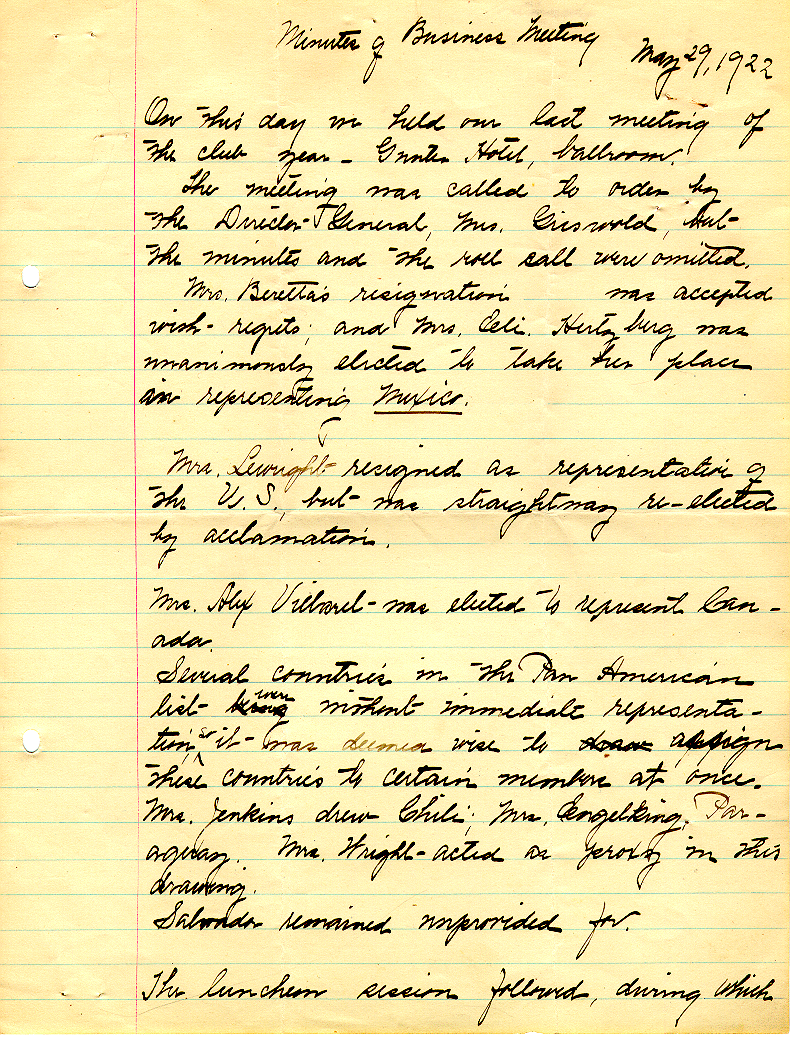 Minutes of Business Meeting
May 29, 1922
On this day we held our last meeting of
the club year - Gunter Hotel, ballroom.
The meeting was called to order by
the Director General, Mrs. Griswold, but
the minutes and the roll call were omitted.
Mrs. Beretta's resignation was accepted
with regrets; and Mrs. Eli. Hertzberg was
unanimously elected to take her place
in representing Mexico.
Mrs. Lewright resigned as representative of
the U.S., but was straightway re-elected
by acclamation.
Mrs. Alex Villaret was elected to represent Can-
ada.
Several countries in the Pan American
list being were without immediate representa-
tion, so it was deemed wise to draw assign
these countries to certain members at once.
Mrs. Jenkins drew Chili; Mrs. Engelking, Par-
aguay. Mrs. Wright acted as proxy in this
drawing.
Salvador remained unprovided for.
The luncheon session followed, during which